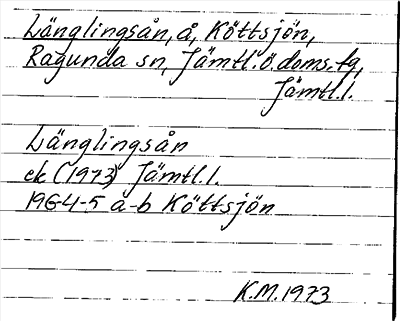 Länglingsån, å, Köttsjön,
Ragunda sn, Jämtl. ö. doms.lg,
Jämtl.l.
Länglingsån
ek (1973) Jämtl.l.
1964-5 a-b Köttsjön
K.M. 1973